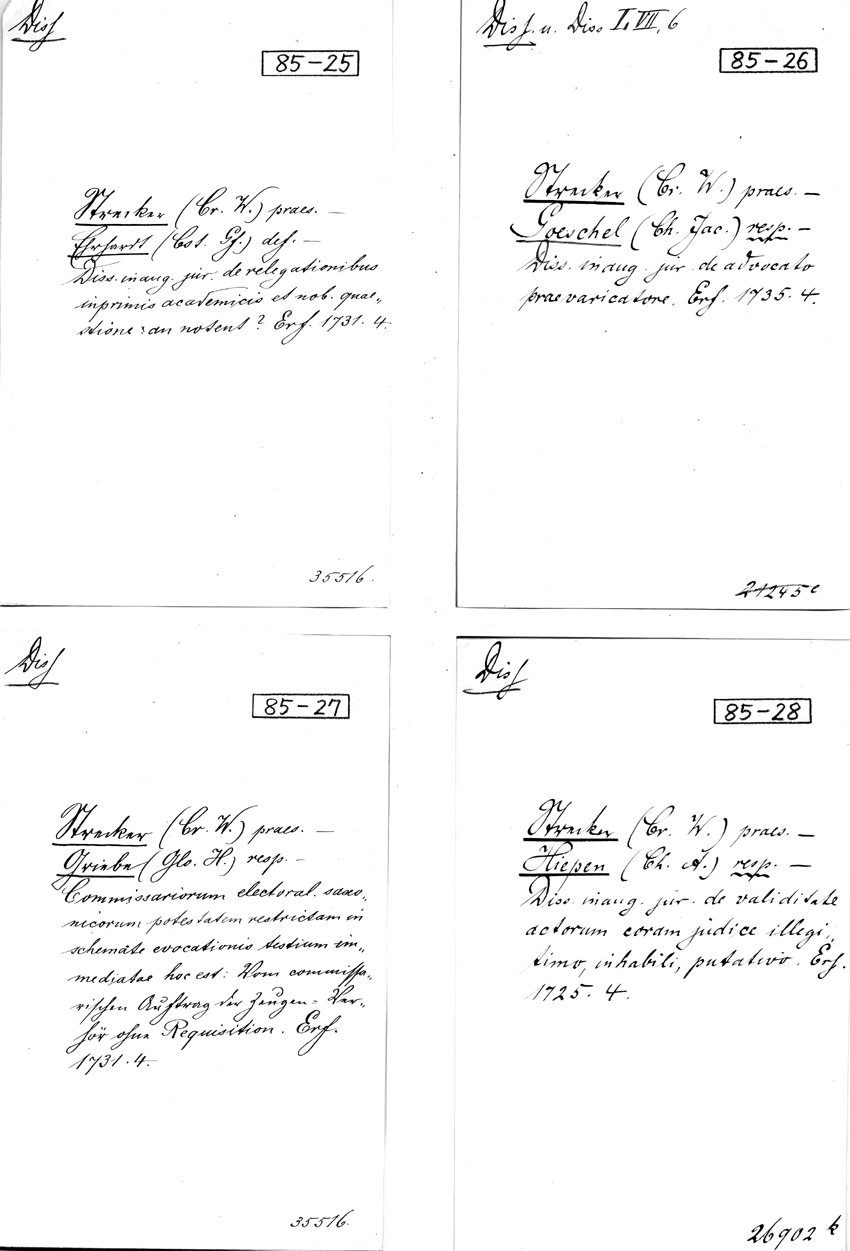 Diss
85-25
Strecker (Cr. W.) praes. —
Ehrhardt (Cst. Gf.) def. —
Diss. inaug. jur. de relegationibus
inprimis academicis et nob. quae„
stione: an notent? Erf. 1731. 4.
35516.
Diss. u. Diss I. VII, 6
85-26
Strecker (Cr. W.) praes. —
Goeschel (Ch. Jac.) resp. —
Diss. inaug. jur. de advocato
praevaricatore. Erf. 1735. 4.
21245 c
Diss
85-27
Strecker (Cr. W.) praes. —
Griebe (Glo. H.) resp. —
Commissariorum electoral. saxo„
nicorum potestatem restrictam in
schemate evocationis testium im„
mediatae hoc est: Vom commissa„
rischen Auftrag der Zeugen-Ver„
hör ohne Requisition. Erf.
1731. 4.
35516.
Diss
85-28
Strecker (Cr. W.) praes. —
Hiepen (Ch. A.) resp. —
Diss. inaug. jur. de validitate
actorum coram judice illegi„
timo, inhabili, putativo. Erf.
1725. 4.
26902 k